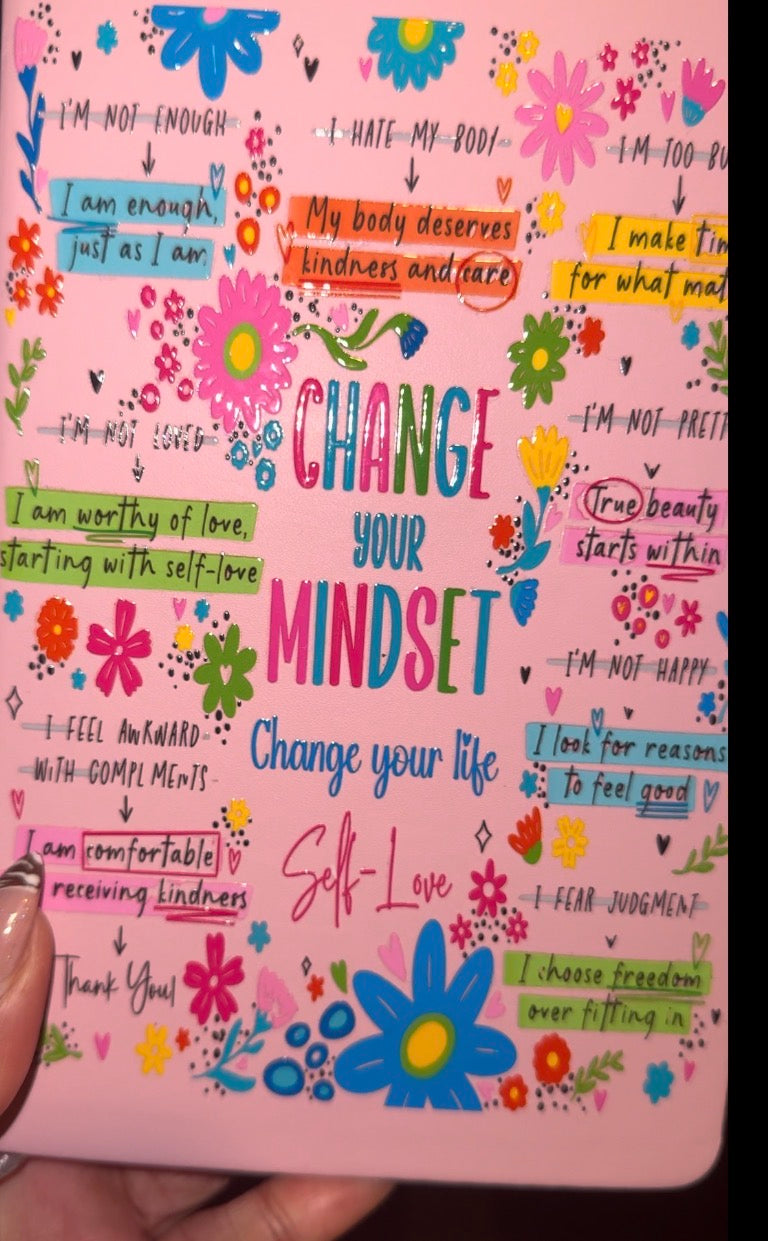 I'M NOT ENOUGH
I am enough,
just as I am
I HATE MY BODY
My body deserves
kindness and care
I'M TOO BU
I make tim
for what mat
CHANGE
YOUR
MINDSET
Change your life
Self-Love
I'M NOT LOVED
I am worthy of love,
starting with self-love
I'M NOT PRETT
True beauty
starts within
I'M NOT HAPPY
I look for reasons
to feel good
I FEEL AWKWARD
WITH COMPLIMENTS
I am comfortable
receiving kindness
Thank You!
I FEAR JUDGMENT
I choose freedom
over fitting in